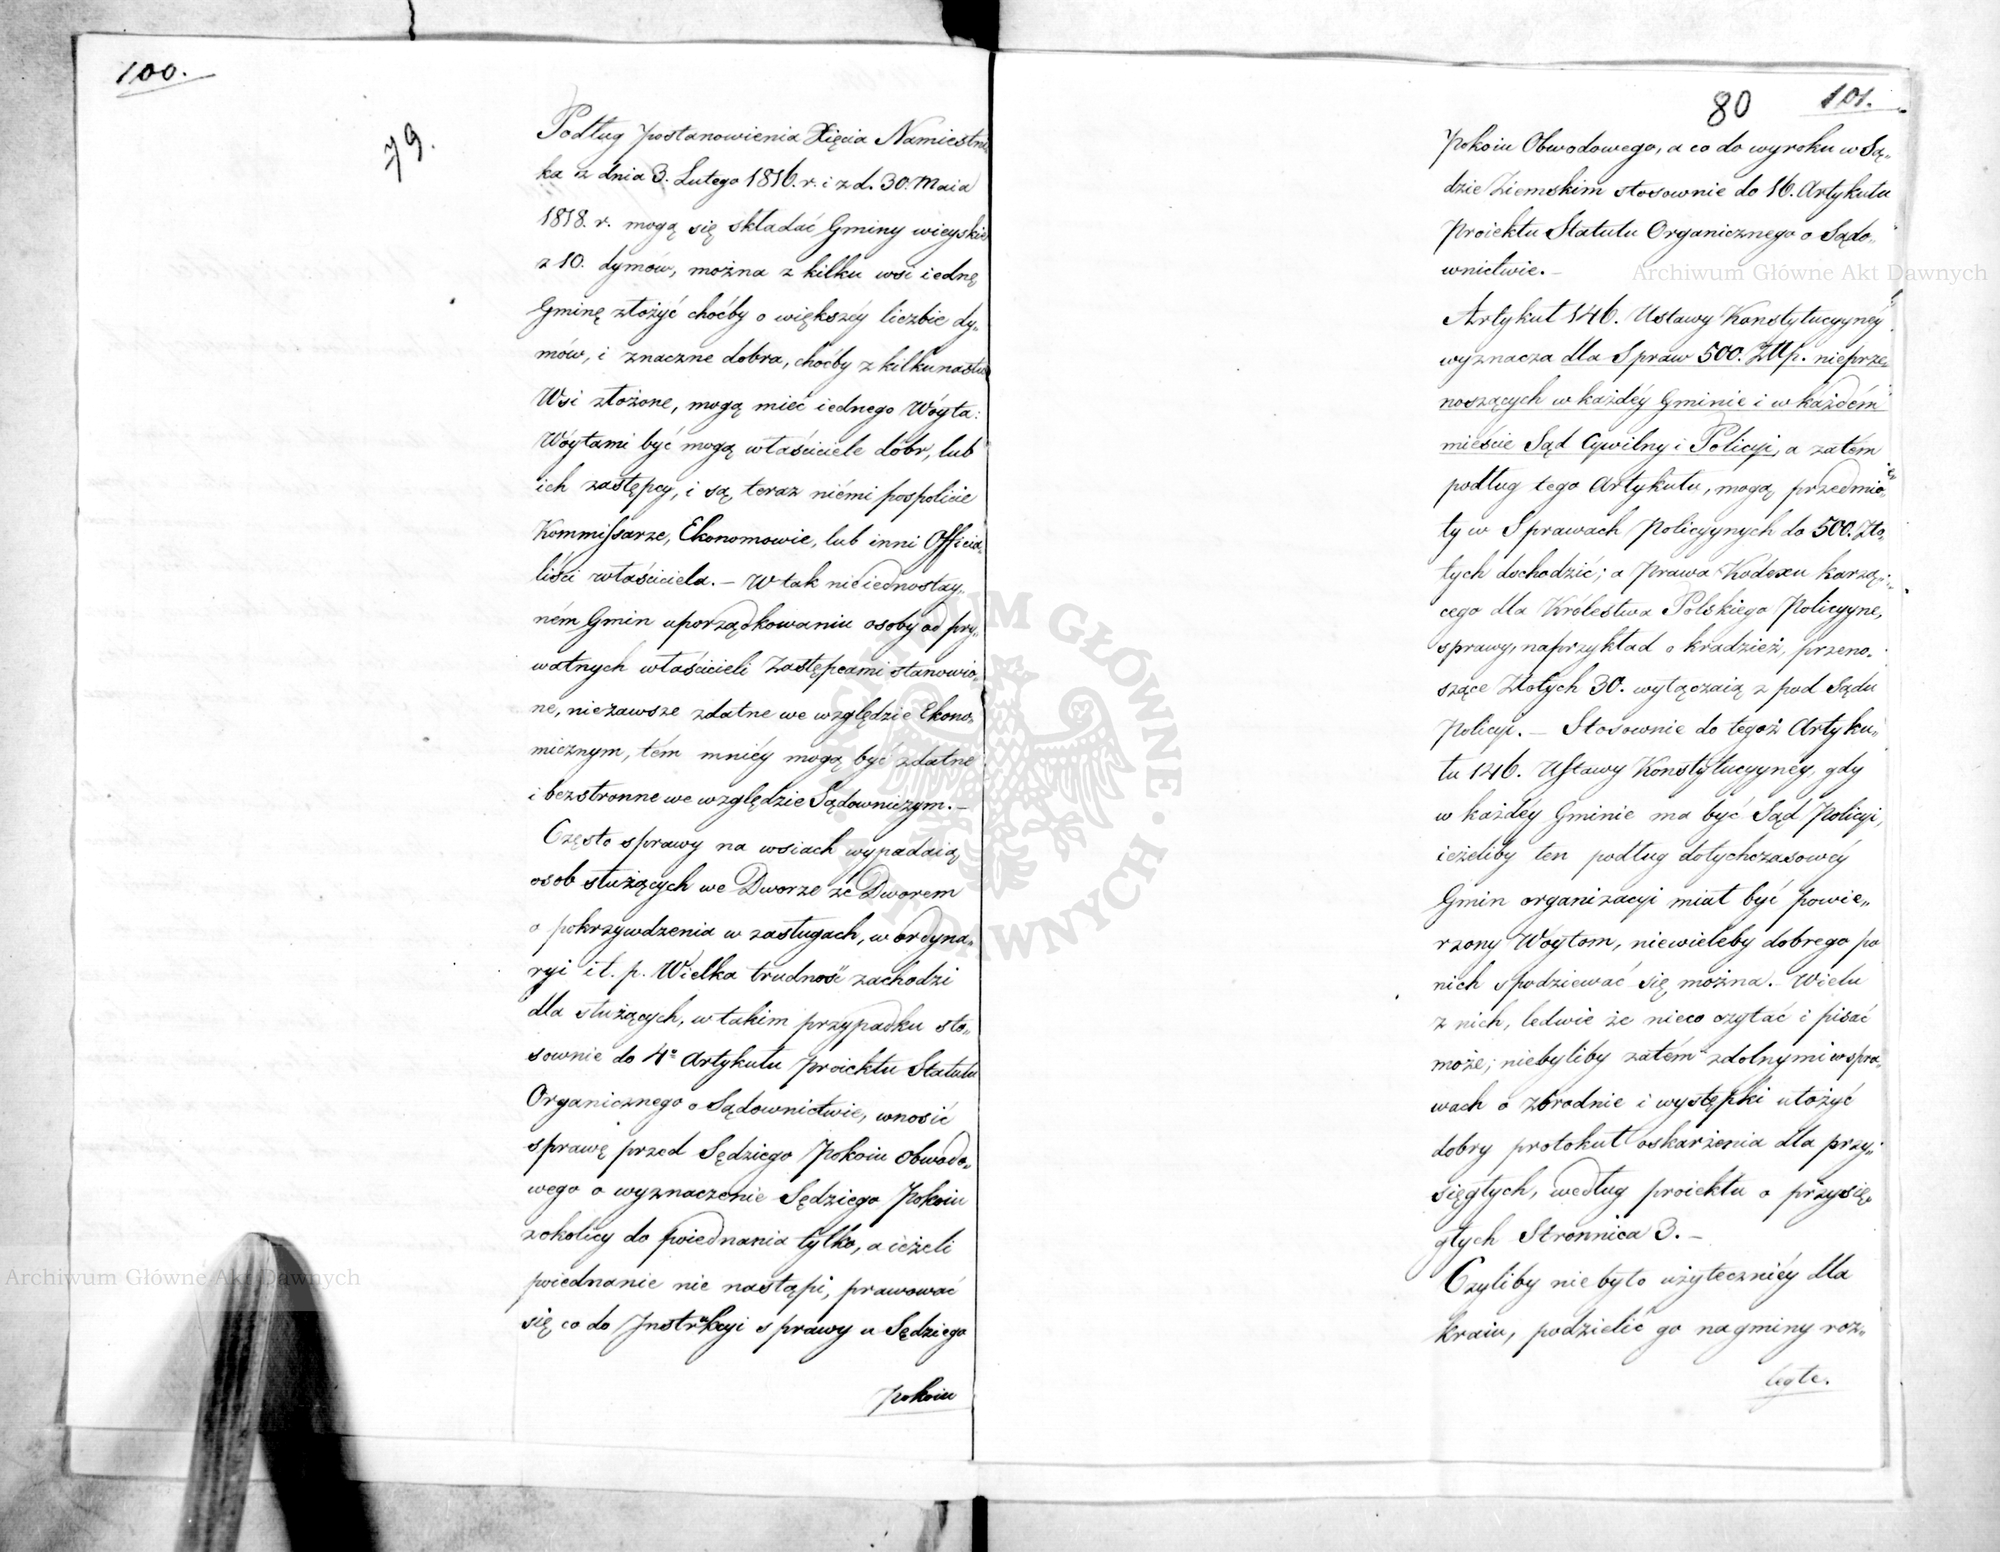 100.
79.
Podług postanowienia Xięcia Namiestni„
ka z dnia 3. Lutego 1816. r. i z d. 30. Maia
1818. r. mogą się składać Gminy wieyskie
z 10. dymów, można z kilku wsi iednę
Gminę złożyć choćby o większéy liczbie dy„
mów, i znaczne dobra, choćby z kilkunastu
Wsi złożone, mogą mieć iednego Wóyta:
Wóytami być mogą właściciele dóbr, lub
ich zastępcy, i są teraz niémi pospolicie
Kommissarze, Ekonomowie, lub inni Official„
liści właściciela. — W tak nieiednostay„
ném Gmin uporządkowaniu osoby od pry„
watnych właścicieli Zastępcami stanowio„
ne, niezawsze zdatne we względzie Ekono„
micznym, tém mniéy mogą być zdatne
i bezstronne we względzie Sądowniczym. —
Często sprawy na wsiach wypadaią
osob służących we Dworze ze Dworem
o pokrzywdzenia w zasługach, w ordyna„
ryi i t. p. Wielka trudność zachodzi
dla służących, w takim przypadku sto„
sownie do 4º Artykułu proiektu Statutu
Organicznego o Sądownictwie, wnosić
sprawę przed Sędziego Pokoiu obwodo„
wego o wyznaczenie Sędziego Pokoiu
z okolicy do poiednania tylko, a ieżeli
poiednanie nie nastąpi, prawować
się co do Instrukcyi sprawy u Sędziego
Pokoiu
80
101.
Pokoiu Obwodowego, a co do wyroku w Są„
dzie Ziemskim stosownie do 16. Artykułu
Proiektu Statutu Organicznego o Sądo„
wnictwie. —
Artykuł 146. Ustawy Konstytucyynéy
wyznacza dla Spraw 500. Złłp. nieprze„
noszących w każdéy Gminie i w każdém
mieście Sąd Cywilny i Policyi, a zatém
podług tego Artykułu, mogą przedmio„
ty w Sprawach Policyynych do 500. Zło„
tych dochodzić; a Prawa Kodexu karzą„
cego dla Królestwa Polskiego Policyyne,
sprawy, naprzykład o kradzież, przeno„
szące Złotych 30. wyłączaią z pod Sądu
Policyi. — Stosownie do tegoż Artyku„
łu 146. Ustawy Konstytucyynéy, gdy
w każdéy Gminie ma być Sąd Policyi,
ieżeliby ten podług dotychczasowéy
Gmin organizacyi miał być powie„
rzony Woytom, niewieleby dobrego po
nich spodziewać się można. Wielu
z nich, ledwie że nieco czytać i pisać
może; niebyliby zatém zdolnymi w spra„
wach o zbrodnie i występki ułożyć
dobry protokuł oskarżenia dla przy„
sięgłych, według proiektu o przysię„
głych Stronnica 3. —
Czyliby nie było użyteczniéy dla
kraiu, podzielić go na gminy roz„
ległe.
Archiwum Główne Akt Dawnych
Archiwum Główne Akt Dawnych
ARCHIWUM GŁÓWNE AKT DAWNYCH